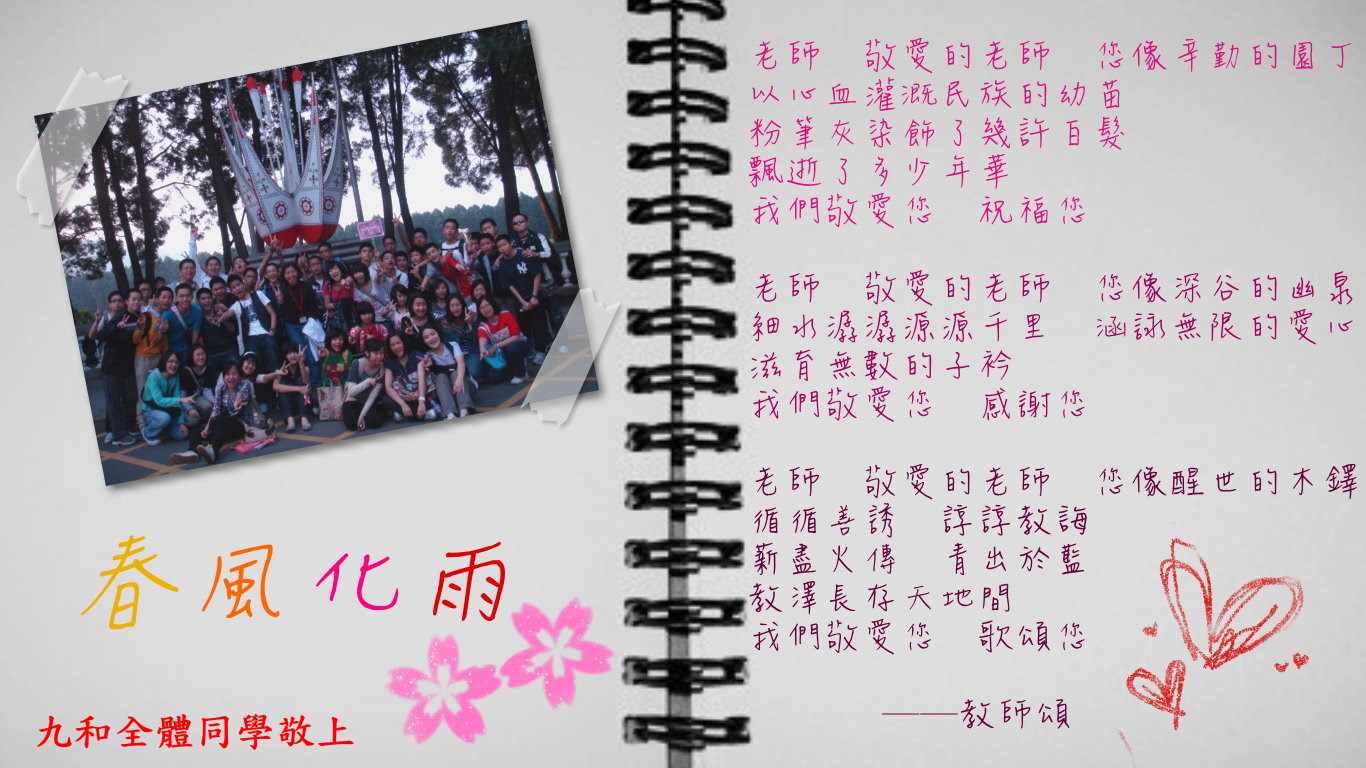 春風化雨
九和全體同學敬上
老師　敬愛的老師　您像辛勤的園丁
以心血灌溉民族的幼苗
粉筆灰染飾了幾許白髮
飄逝了多少年華
我們敬愛您　祝福您
老師　敬愛的老師　您像深谷的幽泉
細水潺潺源源千里　涵詠無限的愛心
滋育無數的子衿
我們敬愛您　感謝您
老師　敬愛的老師　您像醒世的木鐸
循循善誘　諄諄教誨
薪盡火傳　青出於藍
教澤長存天地間
我們敬愛您　歌頌您
——教師頌